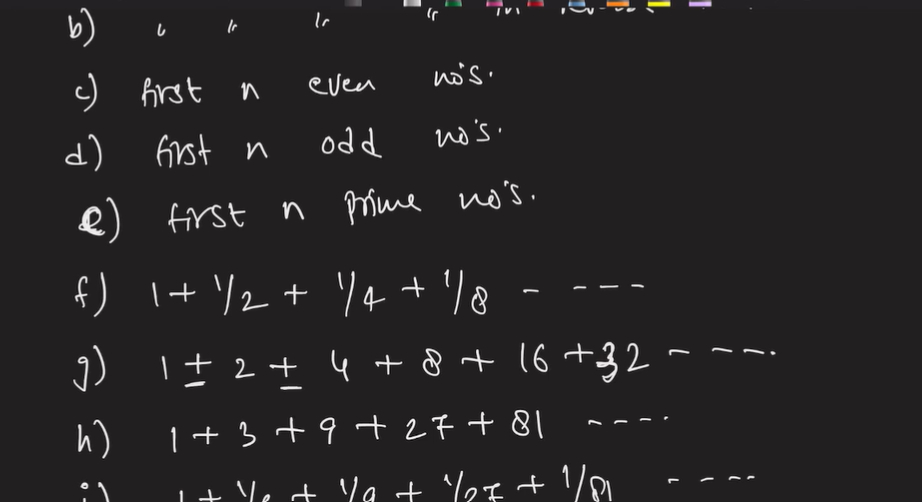 b) " " " "
c) first n even no's.
d) first n odd no's.
e) first n prime no's.
f) 1 + 1/2 + 1/4 + 1/8 - - - - -
g) 1 + 2 + 4 + 8 + 16 + 32 - - - - .
h) 1 + 3 + 9 + 27 + 81 - - - -
i) 1 + 1/3 + 1/9 + 1/27 + 1/81 - - - -